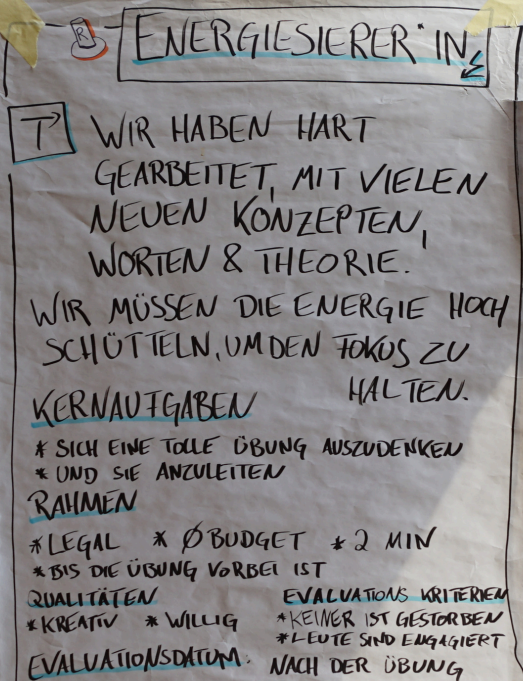 R ENERGIESIERER*IN
T WIR HABEN HART
GEARBEITET, MIT VIELEN
NEUEN KONZEPTEN,
WORTEN & THEORIE.
WIR MÜSSEN DIE ENERGIE HOCH
SCHÜTTELN, UM DEN FOKUS ZU
HALTEN.
KERNAUFGABEN
* SICH EINE TOLLE ÜBUNG AUSZUDENKEN
* UND SIE ANZULEITEN
RAHMEN
* LEGAL * Ø BUDGET * 2 MIN
* BIS DIE ÜBUNG VORBEI IST
QUALITÄTEN
* KREATIV * WILLIG
EVALUATIONS KRITERIEN
* KEINER IST GESTORBEN
* LEUTE SIND ENGAGIERT
EVALUATIONSDATUM: NACH DER ÜBUNG